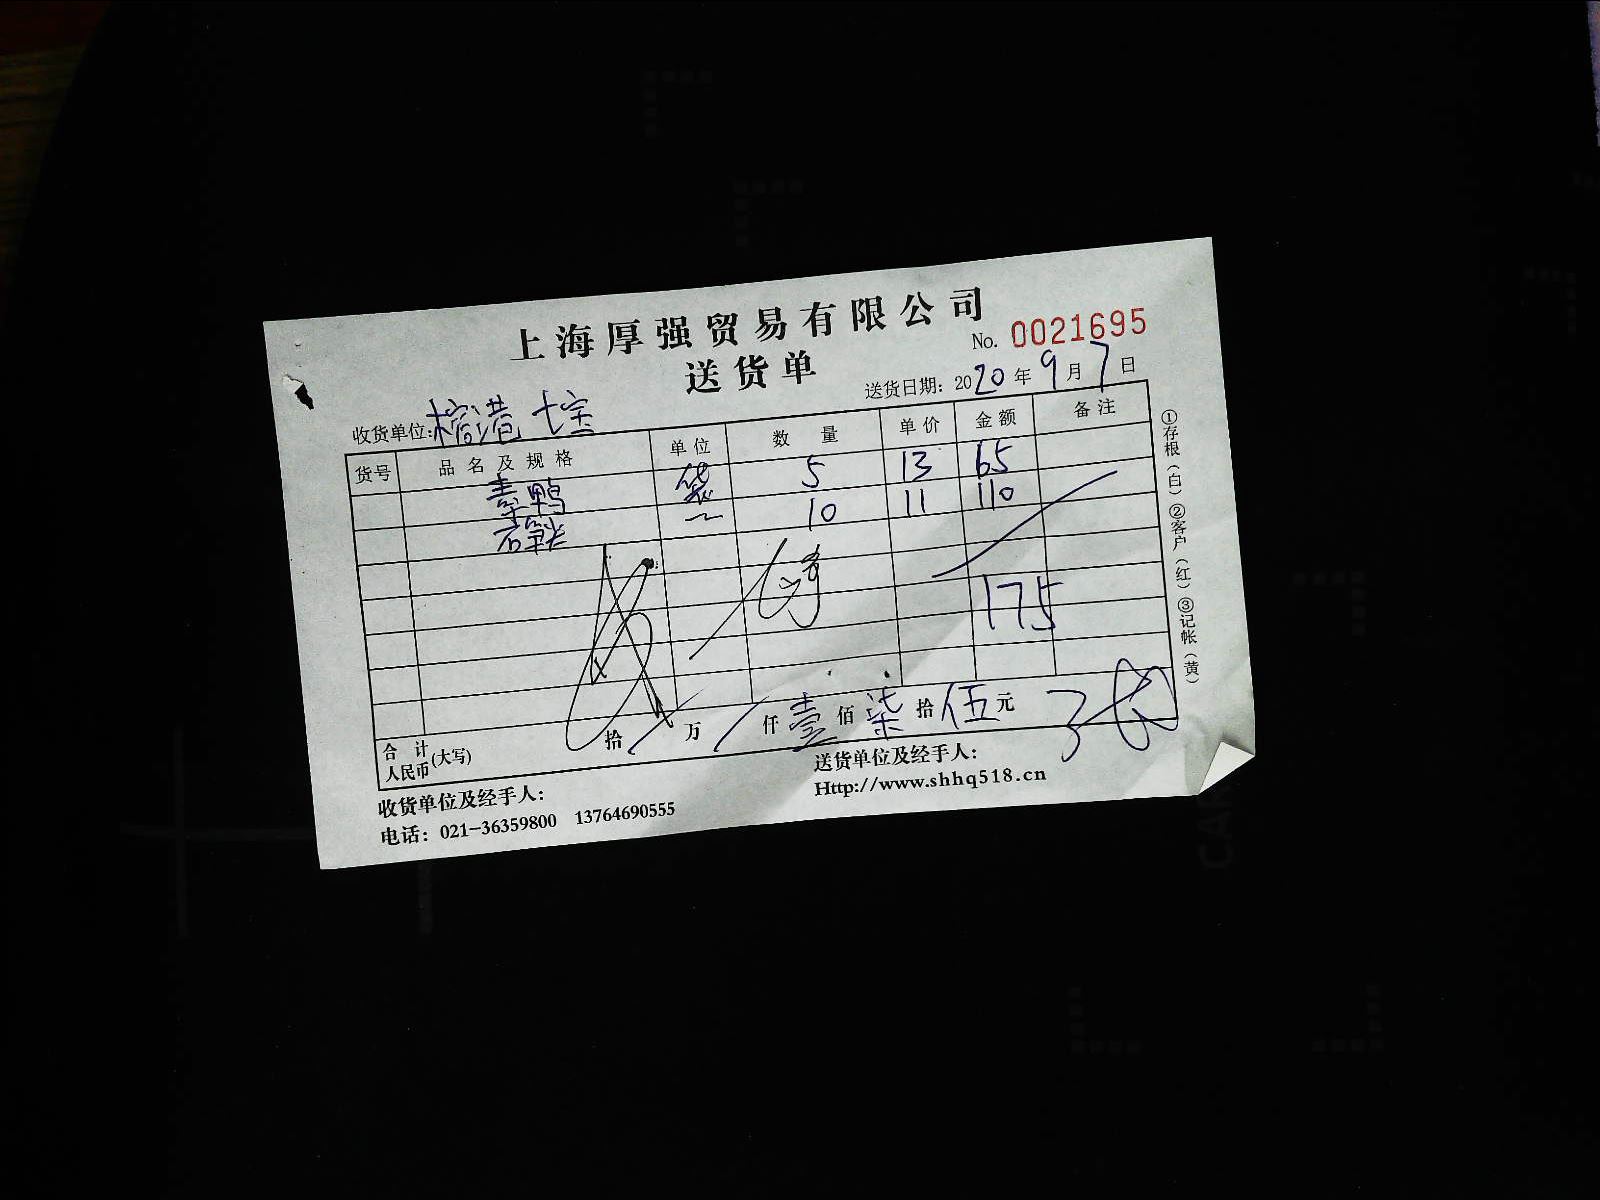 上海厚强贸易有限公司
送货单
No. 0021695
送货日期: 2020 年 9 月 7 日
收货单位: 榕港 七宝
货号 品名及规格 单位 数量 单价 金额 备注
素鸭 袋 5 13 65
10 11 110
175
合计人民币(大写) 拾 万 仟 壹 佰 柒 拾 伍 元
收货单位及经手人:
送货单位及经手人:
电话: 021-36359800 13764690555
Http://www.shhq518.cn
①存根(白)②客户(红)③记帐(黄)